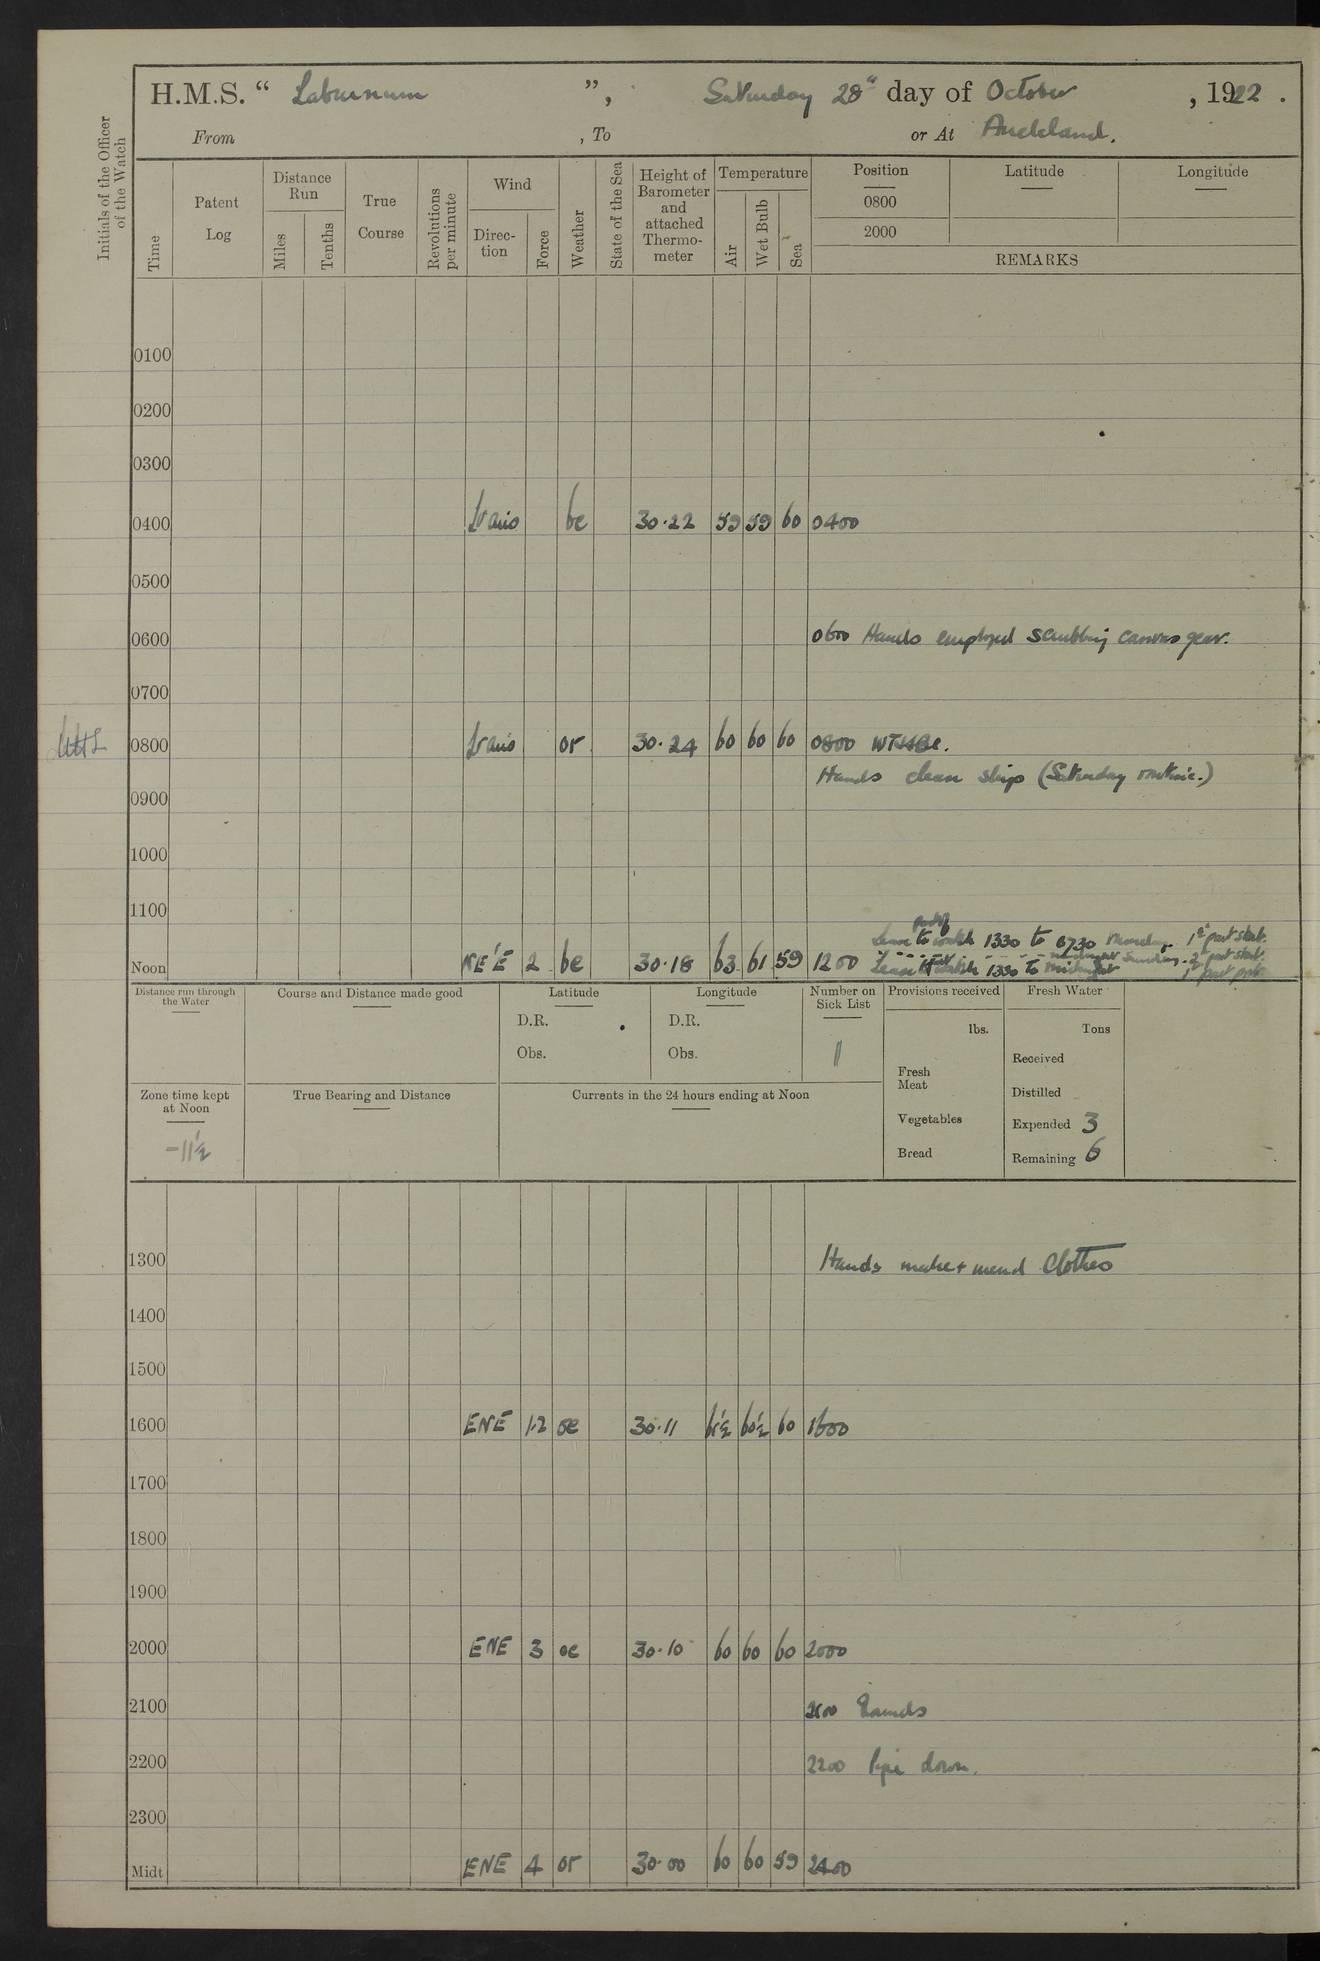 H.M.S. “ Laburnum ”, Saturday 28th day of October, 1922.
From , To or At Auckland.
Initials of the Officer of the Watch
Time
Patent Log
Distance Run
Miles
Tenths
True Course
Revolutions per minute
Wind
Direc-tion
Force
Weather
State of the Sea
Height of Barometer and attached Thermo-meter
Temperature
Air
Wet Bulb
Sea
Position
0800
2000
Latitude
Longitude
REMARKS
0100
0200
0300
0400 Vario bc 30.22 59 59 60 0400
0500
0600 0600 Hands employed scrubbing canvas gear.
0700
0800 Vario or 30.24 60 60 60 0800
Hands clean ship (Saturday routine.)
0900
1000
1100
part of
Leave to watch 1330 to 0730 Monday 1st part stbd.
midnight Sunday. 2nd part stbd.
Noon NE'E 2 bc 30.18 63 61 59 1200 Leave to watch 1330 to midnight 1st part port.
Distance run through the Water
Course and Distance made good
Latitude
D.R.
Obs.
Longitude
D.R.
Obs.
Number on Sick List
11
Provisions received
lbs.
Fresh Meat
Vegetables
Bread
Fresh Water
Tons
Received
Distilled
Expended 3
Remaining 6
Zone time kept at Noon
-11½
True Bearing and Distance
Currents in the 24 hours ending at Noon
1300 Hands make + mend Clothes
1400
1500
1600 ENE 1.2 oc 30.11 61½ 60½ 60 1600
1700
1800
1900
2000 ENE 3 oc 30.10 60 60 60 2000
2100 2100 Rounds
2200 2200 Pipe down.
2300
Midt ENE 4 or 30.00 60 60 59 2400